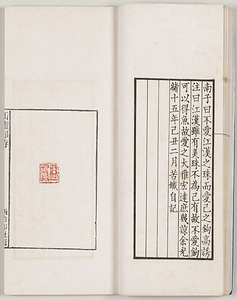 南子曰不愛江漢之珠而愛己之鉤高誘
注曰江漢雖有美珠不為己有故不愛鉤
可以得魚故愛之大雅宏達庶幾諒余光
緒十五年己丑二月苦鐵自記